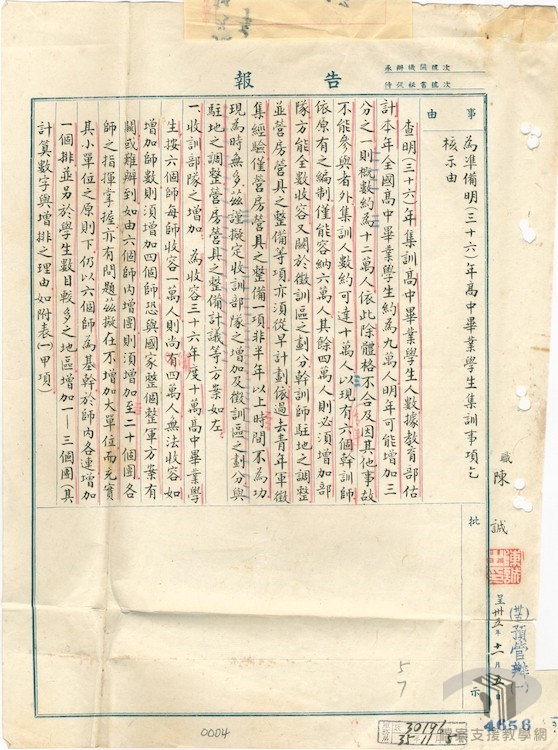 報告
承辦機關號次
侍從秘書號次
事由
為準備明(三十六)年高中畢業學生集訓事項乞
核示由
職 陳誠
呈 卅五年十一月五
(卅五)預管辦(一)
查明(三十六)年集訓高中畢業學生人數據教育部估
計本年全國高中畢業學生約為九萬人明年可能增加三
分之一則概數約為十二萬人依此除體格不合及因其他事故
不能參與者外集訓人數約可達十萬人以現有六個幹訓師
依原有之編制僅能容納六萬人其餘四萬人則必須增加部
隊方能全數收容又關於徵訓區之劃分幹訓師駐地之調整
並營房營具之整備等項亦須從早計劃依過去青年軍徵
集經驗僅營房營具之整備一項非半年以上時間不為功
現為時無多茲謹擬定收訓部隊之增加及徵訓區之劃分與
駐地之調整營房營具之整備計議等方案如左
一、收訓部隊之增加 為收容三十六年度十萬高中畢業學
生按六個師每師收容一萬人則尚有四萬人無法收容如
增加師數則須增加四個師恐與國家整個整軍方案有
關或難辦到如由六個師內增團則須增加至二十個團各
師之指揮掌握亦有問題茲擬在不增加大單位而充實
其小單位之原則下仍以六個師為基幹於師內各連增加
一個排並另於學生數目較多之地區增加一—三個團(其
計算數字與增排之理由如附表(一)甲項)
批
示
57
4656
30196
35 11 5
0004
檔案支援教學網